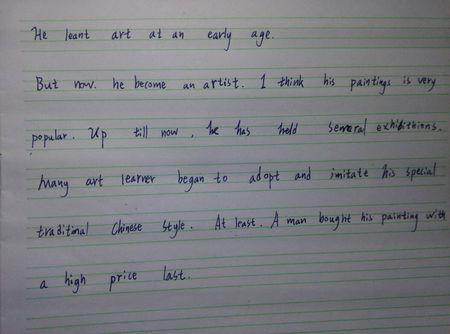 He leant art at an early age.
But now. he become an artist. I think his paintings is very
popular. Up till now, he has held several exhibithions.
Many art learner began to adopt and imitate his special
traditinal Chinese style. At least. A man bought his painting with
a high price last.